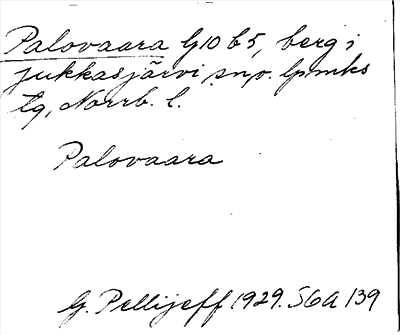 Palovaara G10 b5, berg i
Jukkasjärvi sn o. lpmks
tg, Norrb. l.
Palovaara
G. Pellijeff 1929. S6A 139